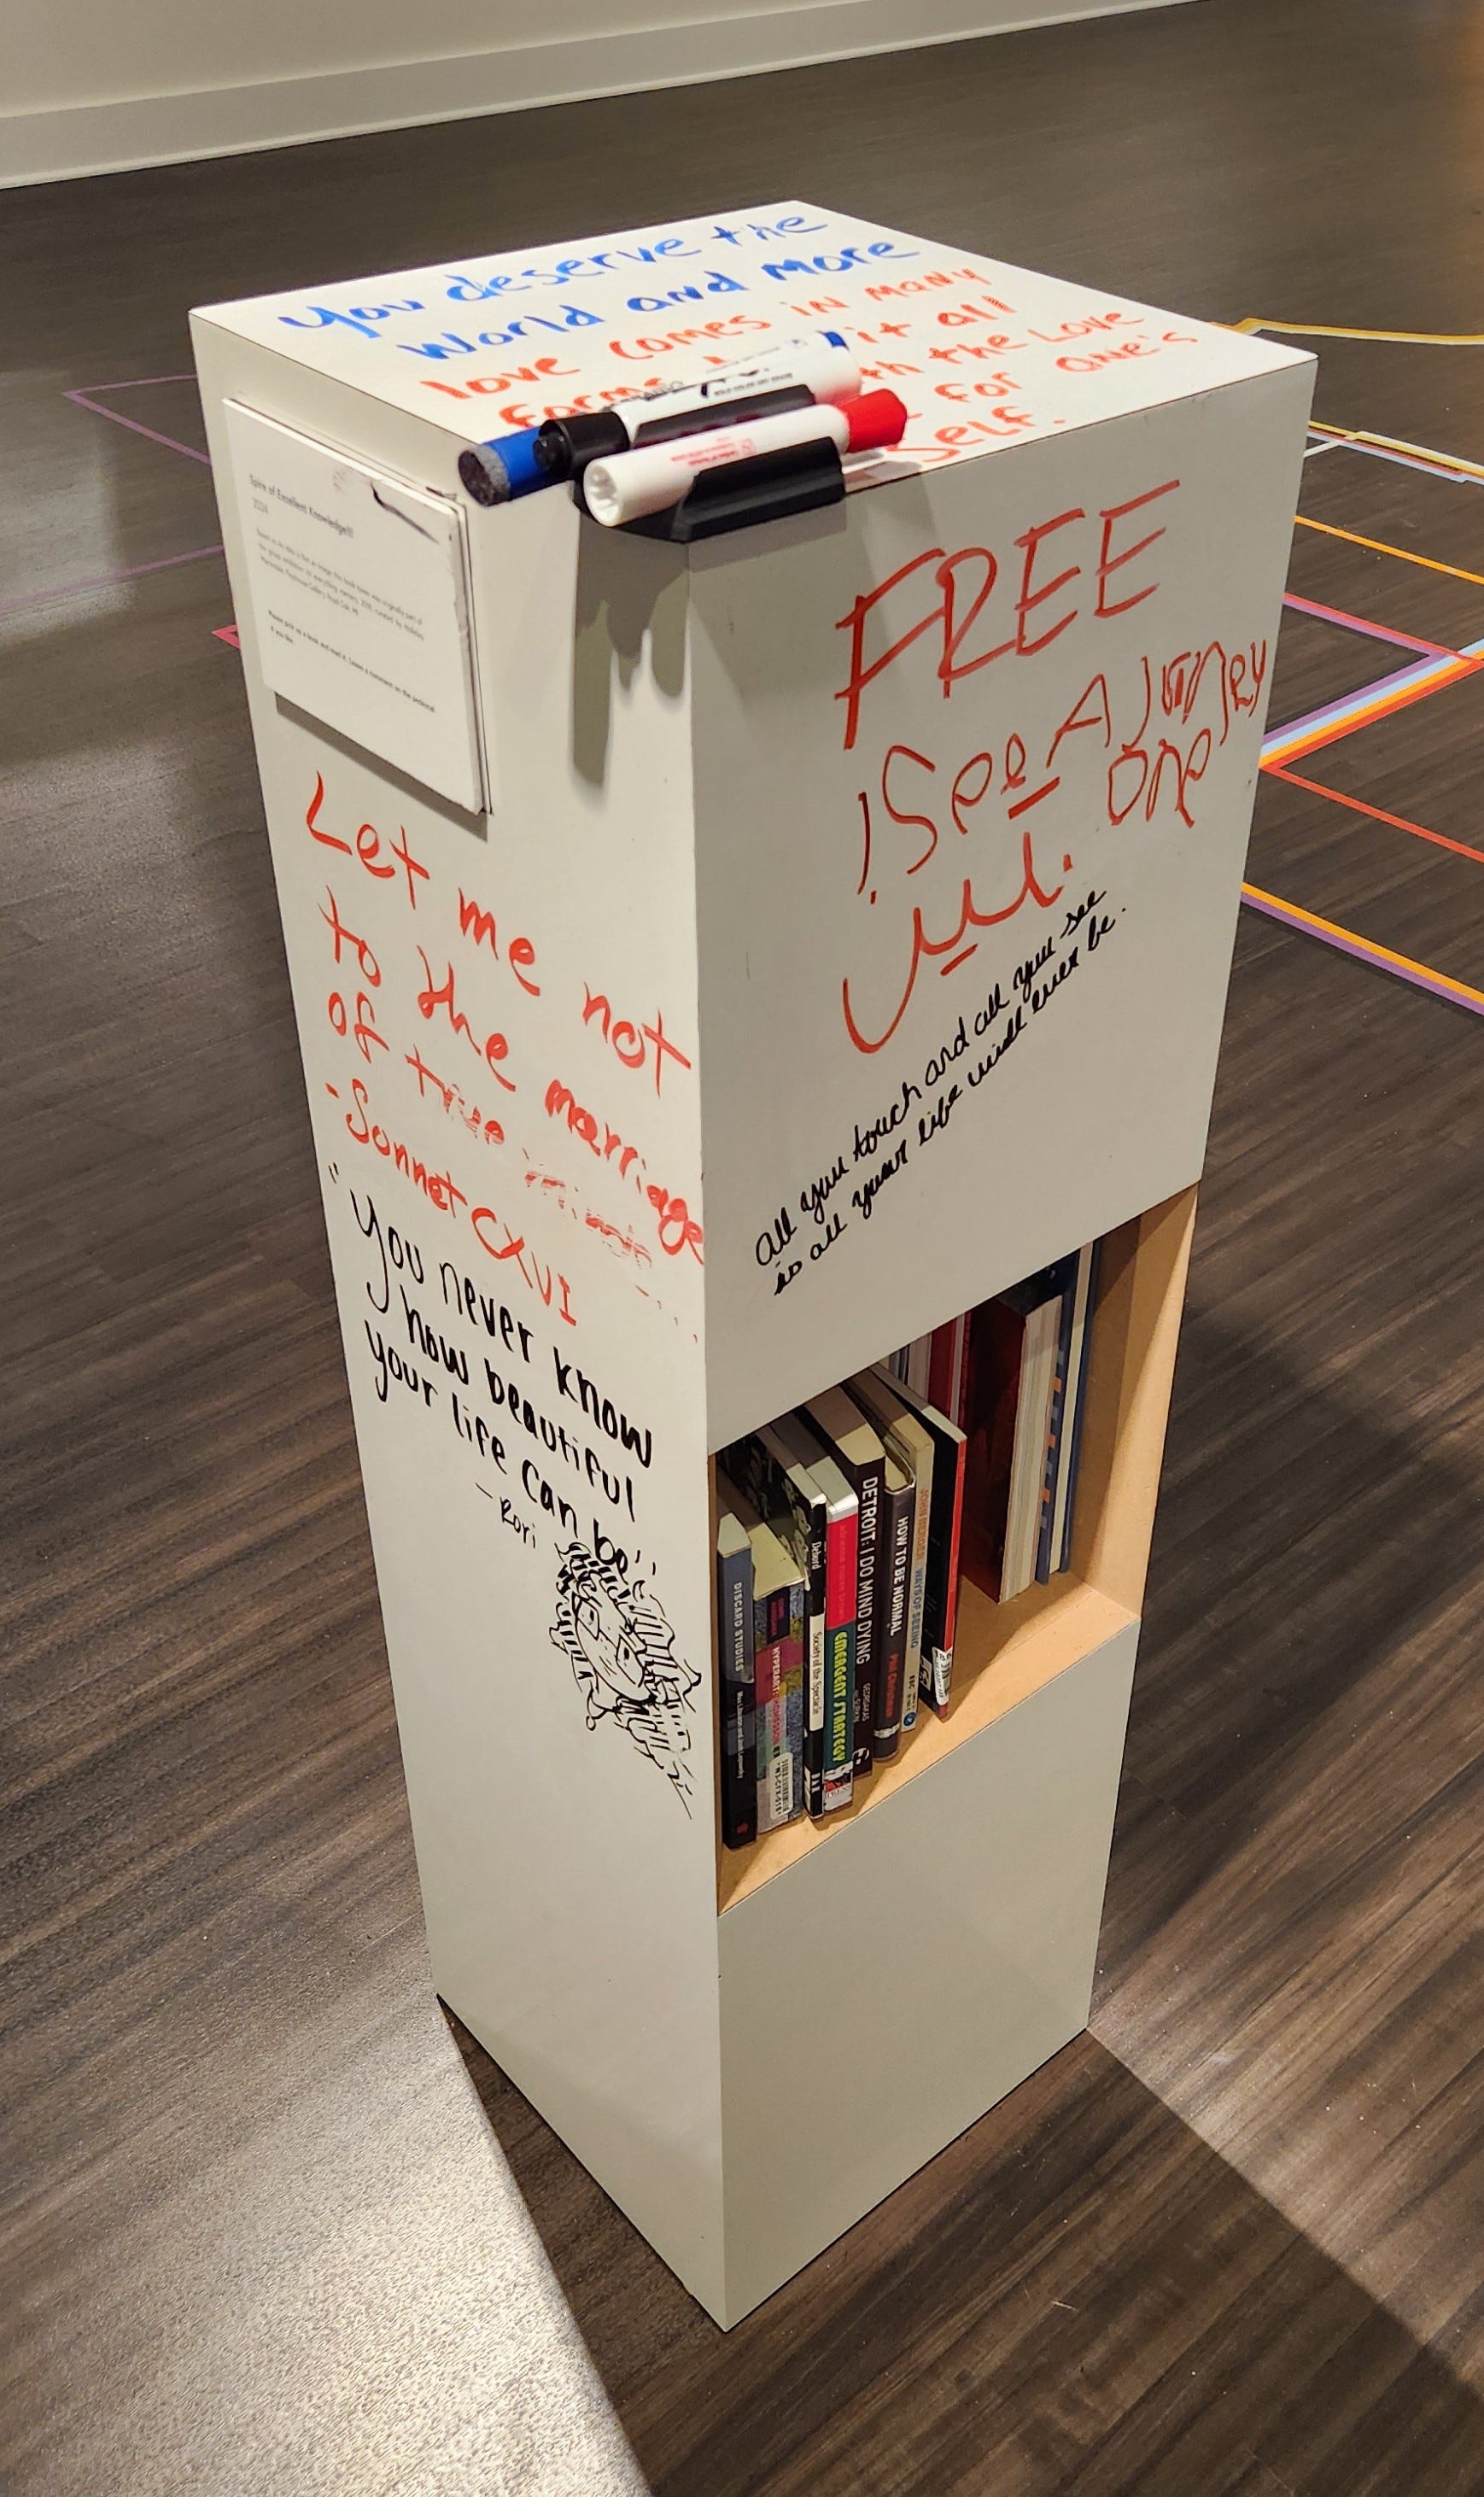 You deserve the
World and more
love comes in many
forms it all
the Love
for one's
self.
Spire of Excellent Knowledge!!!
2024
Please pick up a book and read it. Leave a comment on the pedestal
if you like.
Let me not
to the marriage
of true minds...
-Sonnet CXVI
"You never know
how beautiful
your life can be"
- Rori
FREE
iSee A
one
All you touch and all you see
is all your life will ever be.
DISCARD STUDIES
HYPERART: THOMASSON
Debord Society of the Spectacle
EMERGENT STRATEGY
DETROIT: I DO MIND DYING GEORGAKAS
HOW TO BE NORMAL Phil Christman
JOHN BERGER WAYS OF SEEING